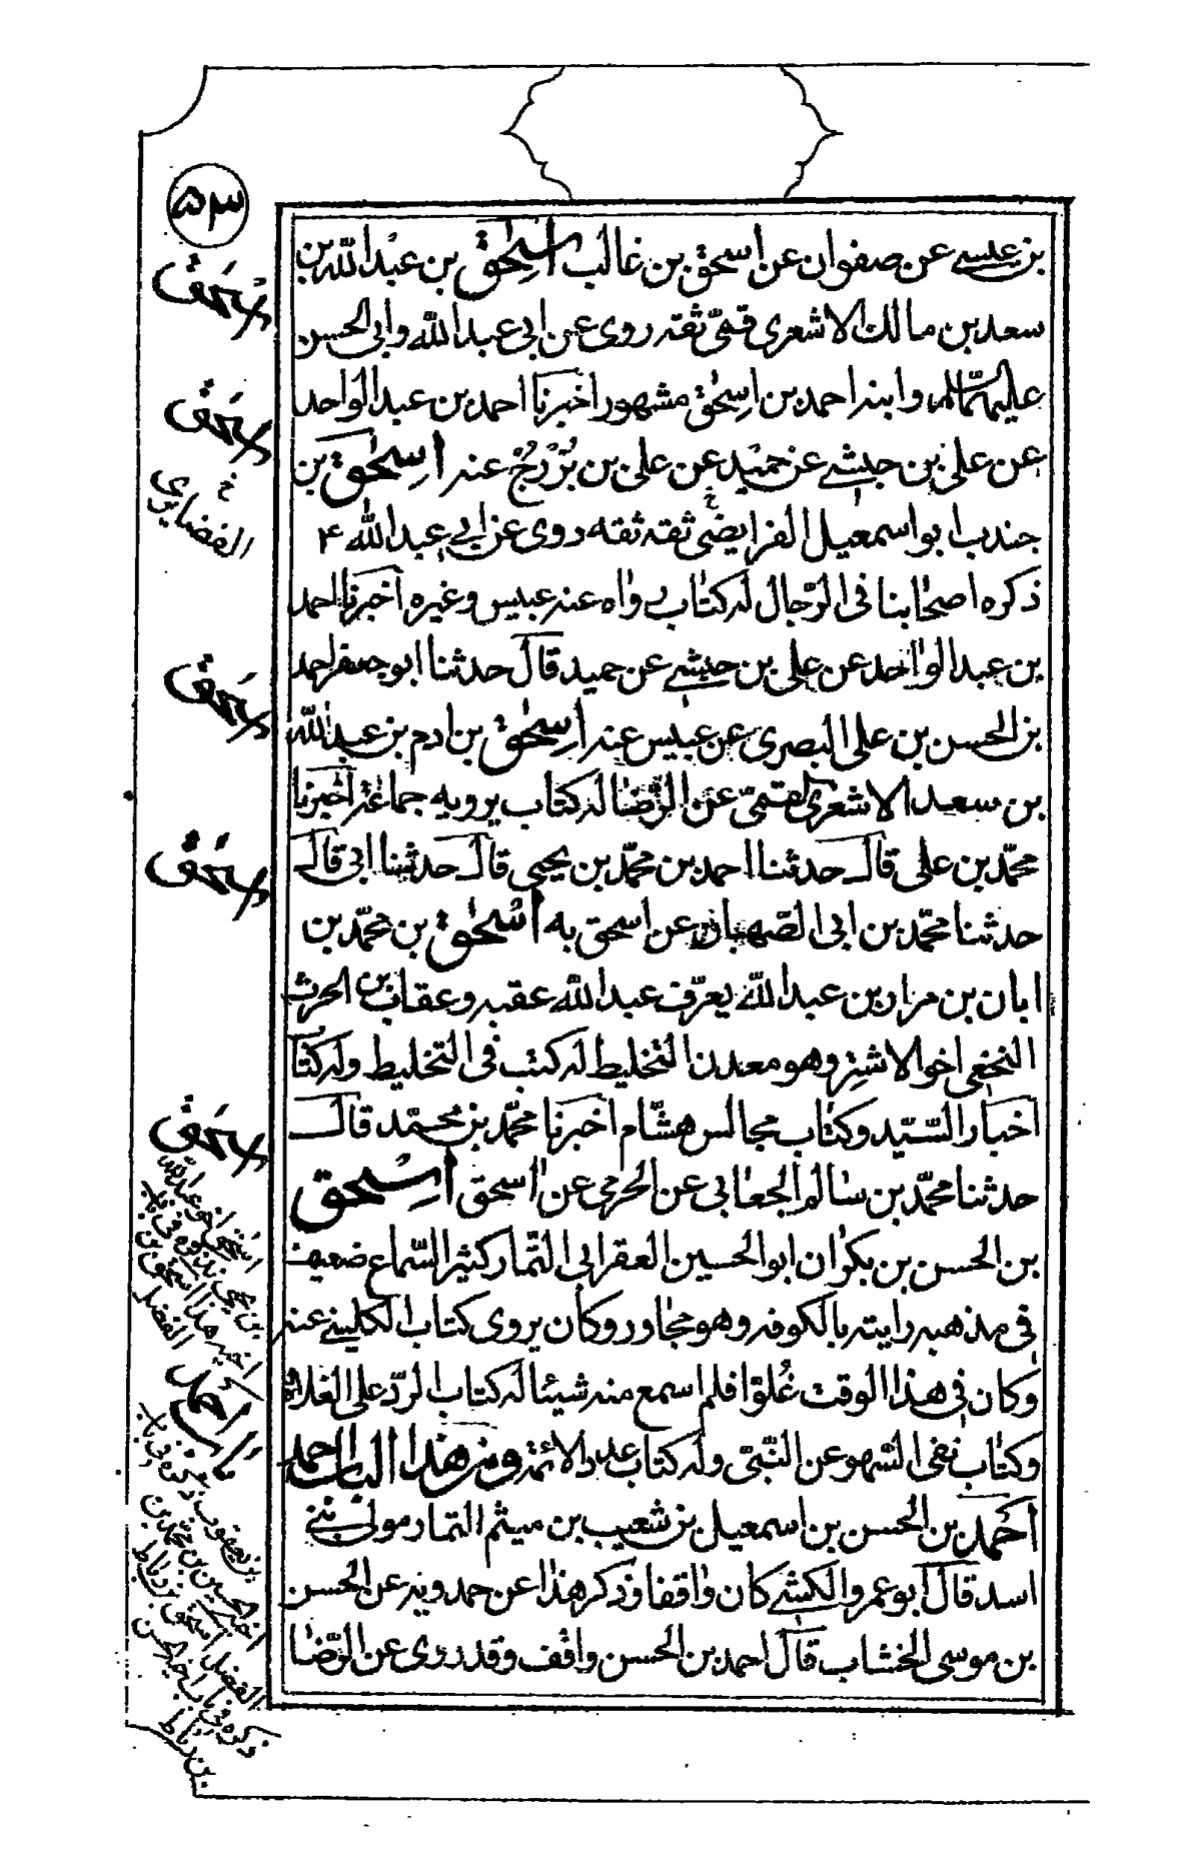 ۵۳
بن عيسى عن صفوان عن اسحق بن غالب اسحق بن عبد الله بن
سعد بن مالك الاشعرى قمىّ ثقة روى عن ابى عبد الله وابى الحسن
عليهما السلم وابنه احمد بن اسحق مشهور اخبرنا احمد بن عبد الواحد
عن على بن حبشى عن حميد عن على بن بزرج عنه اسحق بن
جندب ابو اسمعيل الفرايضى ثقة ثقه روى عن ابى عبد الله ۴
ذكره اصحابنا فى الرّجال له كتاب رواه عنه عبيس وغيره اخبرنا احمد
بن عبد الواحد عن على بن حبشى عن حميد قال حدثنا ابو جعفر احمد
بن الحسن بن على البصرى عن عبيس عنه اسحق بن ادم بن عبد الله
بن سعد الاشعرى القمىّ عن الرّضا له كتاب يرويه جماعة اخبرنا
محمّد بن على قال حدثنا احمد بن محمّد بن يحيى قال حدثنا ابى قال
حدثنا محمّد بن ابى الصّهبان عن اسحق به اسحق بن محمّد بن
ابان بن مرار بن عبد الله يعرّف عبد الله عقبه وعقاب بن الحرث
النخعى اخو الاشتر وهو معدن التخليط له كتب فى التخليط وله كتاب
اخبار السّيّد وكتاب مجالس هشّام اخبرنا محمّد بن محمّد قال
حدثنا محمّد بن سالم الجعابى عن الجرمى عن اسحق اسحق
بن الحسن بن بكران ابو الحسين العقرابى التّمار كثير السّماع ضعيف
فى مذهبه رايته بالكوفه وهو مجاور وكان يروى كتاب الكلينى عنه
وكان فى هذا الوقت غُلوّا فلم اسمع منه شيئا له كتاب الردّ على الغلاة
وكتاب نفى السّهو عن النّبىّ وله كتاب عدد الائمة ومن هذا الباب احمد
احمد بن الحسن بن اسمعيل بن شعيب بن ميثم التمار مولى بنى
اسد قال ابو عمرو الكشى كان واقفا وذكر هذا عن حمدويه عن الحسن
بن موسى الخشاب قال احمد بن الحسن واقف وقد روى عن الرّضا
اسحق
اسحق
خ
الغضايرى
اسحق
اسحق
اسحق
اسحق اخو عبد الله
بن يحيى ذكره فى باب
اخيه هذا اسحق بن
الفضل
احمد
بن يعقوب ذكره فى باب
اخيه الحسين بن محمّد بن
الفضل اسحق بن رباط
ذكره فى باب اخيه الحسن
بن رباط